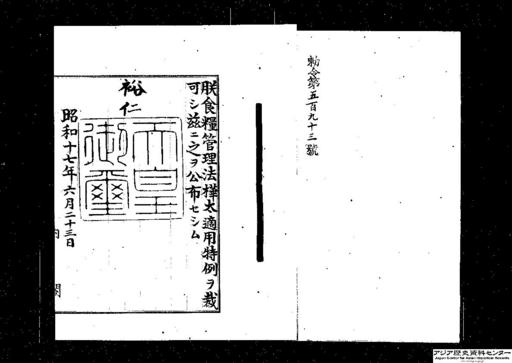 勅令第五百九十三號
朕食糧管理法樺太適用特例ヲ裁
可シ茲ニ之ヲ公布セシム
裕仁
天皇
御璽
昭和十七年六月二十三日
内閣
アジア歴史資料センター
Japan Center for Asian Historical Records